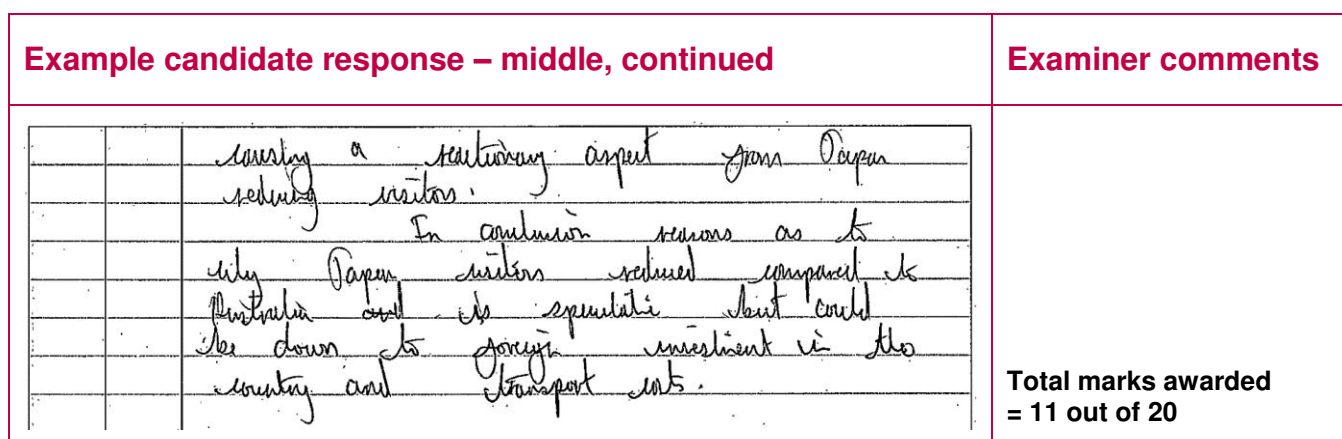 Example candidate response – middle, continued
Examiner comments
causing a reactionary aspect from Japan
reducing visitors.
In conclusion reasons as to
why Japan visitors reduced compared to
Australia and is speculative but could
be down to foreign investment in the
country and transport costs.
Total marks awarded
= 11 out of 20